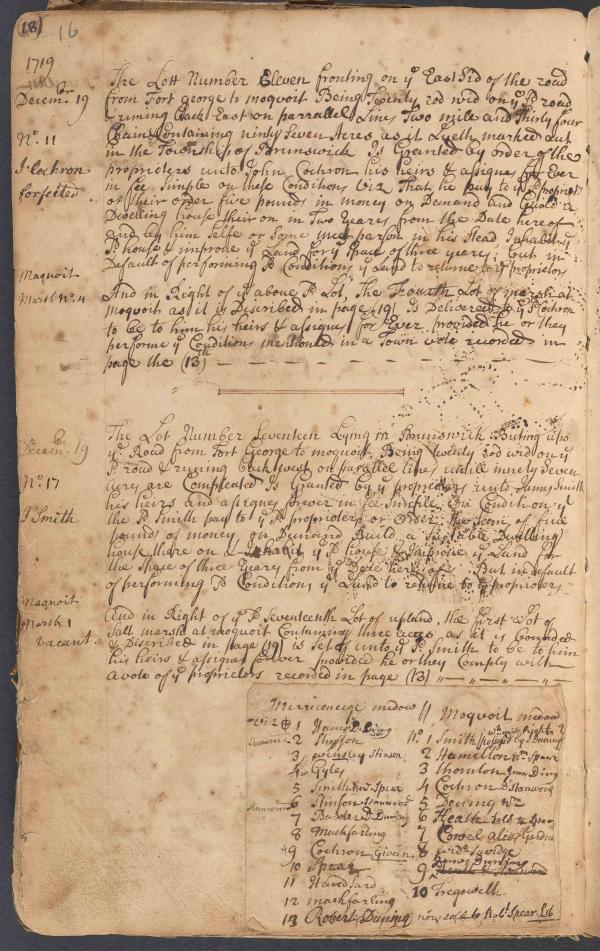 (18) 16
1719
Decembr. 19
No. 11
J. Cochron
forfeited
The Lott Number Eleven fronting on ye East Sid of the road
from Fort George to moquoit Being Twenty rod wid on ye Sd road
& runing back East on parrallel Lines Two mile and thirty four
Chain Containing ninty Seven Acres as it Lyeth marked out
in the Township of Brunswick Is Granted by order of the
proprieters unto John Cochron his heirs & assignes for Ever
in fee Simple on these Conditions Viz That he pay to ye Sd propriets
or their order five pounds in money on Demand and Build a
Dwelling house their on in Two Yeares from the Date hereof
and by him Selfe or Some meet person in his Stead, Inhabit ye
Sd house & improve ye Land for ye Space of three yeares, but in
Default of performing Sd Conditions ye Land to returne to ye proprietors
Maquoit
Marsh No. 4
And in Right of ye above Sd Lot, The Fourth Lot of marsh at
moquoit as it is Discribed in page (19) Is Delivered to ye Sd Cochron
to be to him his heirs & assignes for Ever, provided he or they
performe ye Conditions mentioned in a Town vote recorded in
page the (13)th
Decembr. 19
No. 17
J Smith
The Lot Number Seventeen Lying in Brunswick Buting upo
ye Road from Fort George to moquoit, Being Twenty rod wid on ye
Sd road & runing back west on parallel lines untill ninety Seven
acres are Compleated Is Granted by ye proprieters unto James Smith
his heirs and assignes forever in fee Simple on Condition yt
the Sd Smith pay to ye Sd proprieters or Order the Sum of five
pounds of money on Demand Build a Suitable Dwelling
house there on & Inhabit ye Sd house & improve ye Land for
the Space of three Yeares from ye Date hereof. But in default
of performing Sd Conditions ye Land to returne to ye proprieters
Maquoit
Marsh 1
vacant
And in Right of ye Sd Seventeenth Lot of upland, the first Lot of
Salt marsh at moquoit Containing three acres as it is Bounded
& Discribed in page (19) is Set of unto ye Sd Smith to be to him
his heirs & assignes forever provided he or they Comply with
a vote of ye proprietors recorded in page (13)
Merriconeige medow || Moquoit medow
1
2 Stinson
3 Stinson
4 Gyles
5 Smith Spear
6 Stinson
7
8 Mackfarling
9 Cochron Given
10 Spear
11
12 mackfarling
13 Robert Duning
No. 1 Smith
2 Hamelton Spear
3 thornton
4 Cochron
5 Dening Wm
6 Heath
7
8
9
10 Tregoweth
now sold to Robt Spear